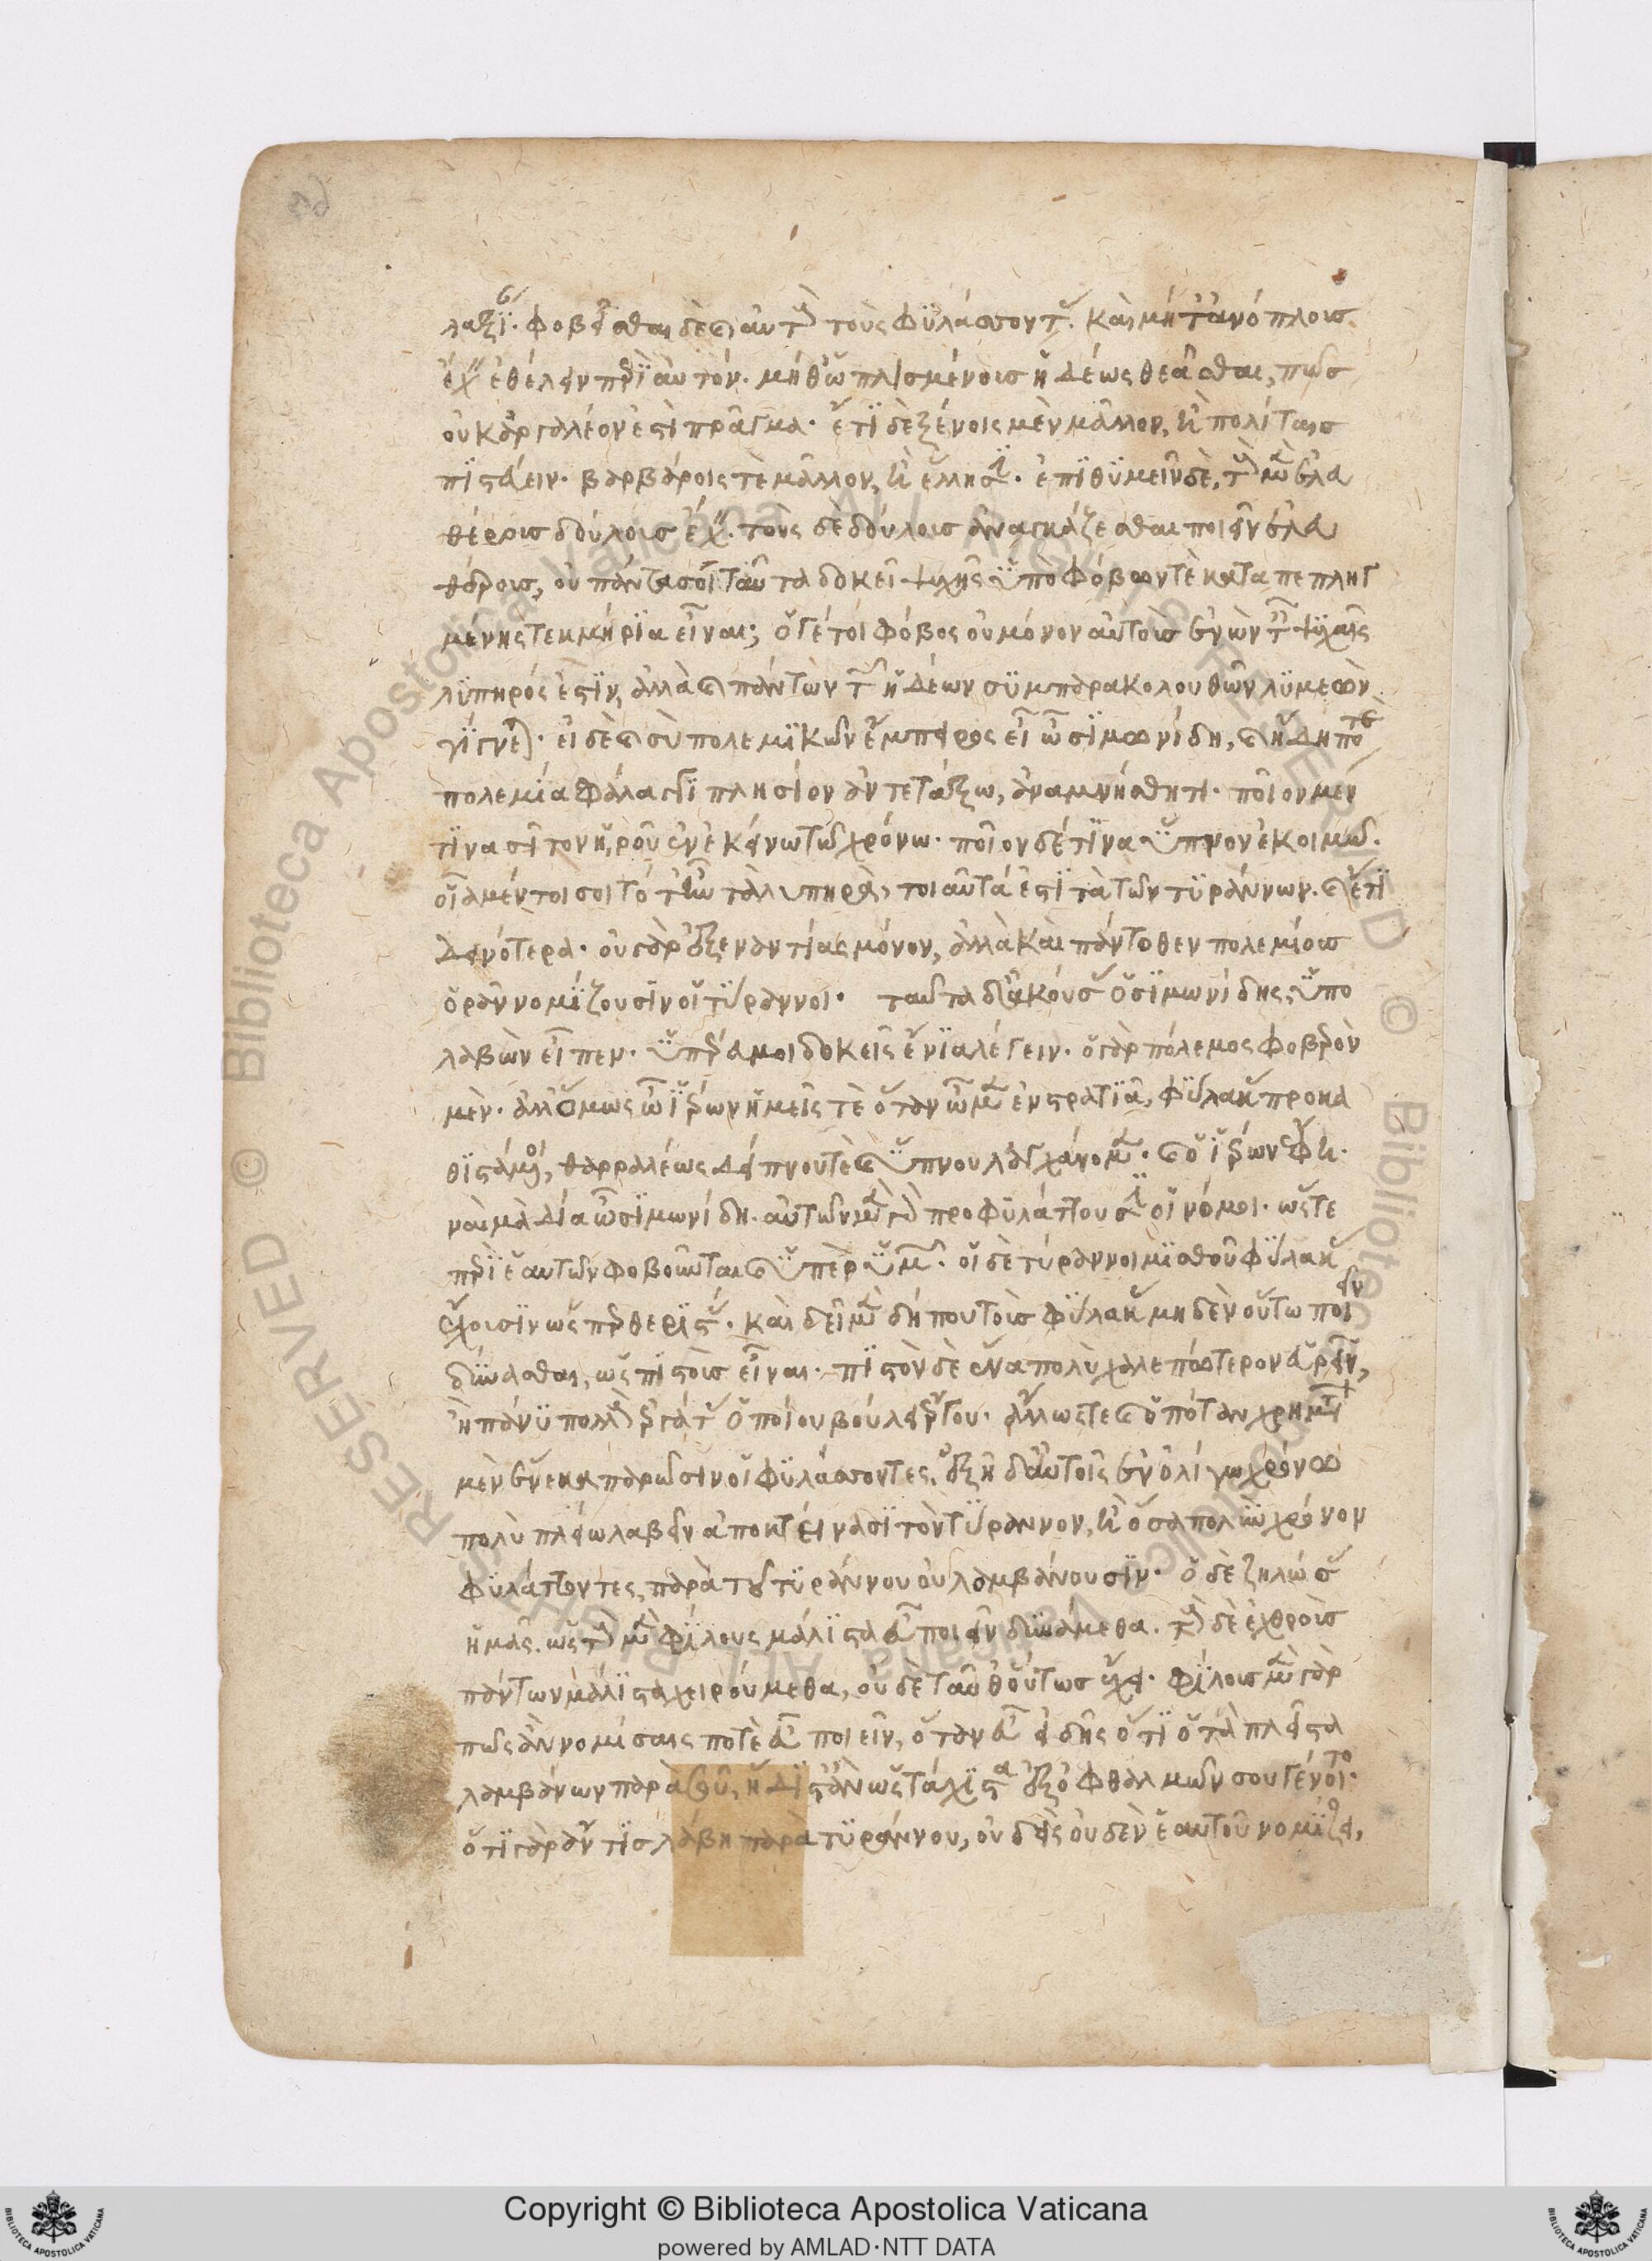 λαξι. φοβεῖσθαι δὲ καὶ αὐτοὺς τοὺς φυλάσσοντας. καὶ μήτ' ἀνόπλους
ἔχειν ἐθέλειν περὶ αὑτόν. μήθ' ὡπλισμένους ἡδέως θεᾶσθαι, πῶς
οὐκ ἀργαλέον ἐστὶ πρᾶγμα. ἔτι δὲ ξένοις μὲν μᾶλλον, ἢ πολίταις
πιστεύειν. βαρβάροις τὲ μᾶλλον, ἢ ἕλλησιν. ἐπιθυμεῖν δὲ, τοὺς μὲν ἐλευ
θέρους δούλους ἔχειν. τοὺς δὲ δούλους ἀναγκάζεσθαι ποιεῖν ἐλευ
θέρους, οὐ πάντα σοὶ ταῦτα δοκεῖ ψυχῆς ὑπὸ φόβων τὲ καταπεπληγ
μένης τεκμήρια εἶναι; ὅ γέ τοι φόβος οὐ μόνον αὐτοῖς ἐνὼν ταῖς ψυχαῖς
λυπηρός ἐστιν, ἀλλὰ καὶ πάντων τῶν ἡδέων συμπαρακολουθῶν λυμεὼν
γίγνεται. εἰ δὲ καὶ σὺ πολεμικῶν ἔμπειρος εἶ ὦ σιμωνίδη, καὶ ἤδη ποτὲ
πολεμία φάλαγγι πλησίον ἀντετάξω, ἀναμνήσθητι. ποῖον μέν
τινα σῖτον ᾑροῦ ἐν ἐκείνω τῶ χρόνω. ποῖον δέ τινα ὕπνον ἐκοιμῶ.
οἷα μέντοι σοι τότ' ἦν τὰ λυπηρὰ, τοιαῦτά ἐστι τὰ τῶν τυράννων. καὶ ἔτι
δεινότερα. οὐ γὰρ ἐξεναντίας μόνον, ἀλλὰ καὶ πάντοθεν πολεμίους
ὁρᾶν νομίζουσιν οἱ τύραννοι. ταῦτα δ' ἀκούσας ὁ σιμωνίδης ὑπο
λαβὼν εἶπεν. ὑπέρευ μοι δοκεῖς ἔνια λέγειν. ὁ γὰρ πόλεμος φοβερὸν
μὲν. ἀλλ' ὅμως ὦ ἱέρων ἡμεῖς τὲ ὅταν ὦμεν ἐν στρατιᾶ, φύλακας προκα
θιστάμενοι, θαρραλέως δείπνου τὲ καὶ ὕπνου λαγχάνομεν. καὶ ὁ ἱέρων ἔφη.
ναὶ μὰ δία ὦ σιμωνίδη. αὐτῶν μὲν γὰρ προφυλάττουσιν οἱ νόμοι. ὥστε
περὶ ἑαυτῶν φοβοῦνται καὶ ὑπὲρ ὑμῶν. οἱ δὲ τύραννοι μισθοῦ φύλακας
ἔχουσιν ὥσπερ θεριστάς. καὶ δεῖ μὲν δήπου τοὺς φύλακας μηδὲν οὕτω ποιεῖν
δύνασθαι, ὡς πιστοὺς εἶναι. πιστὸν δὲ ἕνα πολὺ χαλεπώτερον εὑρεῖν,
ἢ πάνυ πολλοὺς ἐργάτας ὁποίου βούλει ἔργου. ἄλλως τε καὶ ὁπόταν χρημάτων
μὲν ἕνεκα παρῶσιν οἱ φυλάσσοντες, ἐξῆ δ' αὐτοῖς ἐν ὀλίγω χρόνω
πολὺ πλείω λαβεῖν ἀποκτείνασι τὸν τύραννον, ἢ ὅσα πολὺν χρόνον
φυλάττοντες, παρὰ τοῦ τυράννου οὐ λαμβάνουσιν. ὃ δὲ ζηλώσας
ἡμᾶς. ὡς τοὺς μὲν φίλους μάλιστα εὖ ποιεῖν δυνάμεθα. τοὺς δὲ ἐχθροὺς
πάντων μάλιστα χειρούμεθα, οὐδὲ ταῦθ' οὕτως ἔχει. φίλους μὲν γὰρ
πῶς ἂν νομίσαις ποτὲ εὖ ποιεῖν, ὅταν εὖ εἰδῆς ὅτι ὁ τὰ πλεῖστα
λαμβάνων παρὰ σοῦ, ἥδιστ' ἂν ὡς τάχιστα ἐξ ὀφθαλμῶν σου γένοιτο.
ὅτι γὰρ ἄν τις λάβη παρὰ τυράννου, οὐδεὶς οὐδὲν ἑαυτοῦ νομίζει,
Copyright © Biblioteca Apostolica Vaticana
powered by AMLAD·NTT DATA